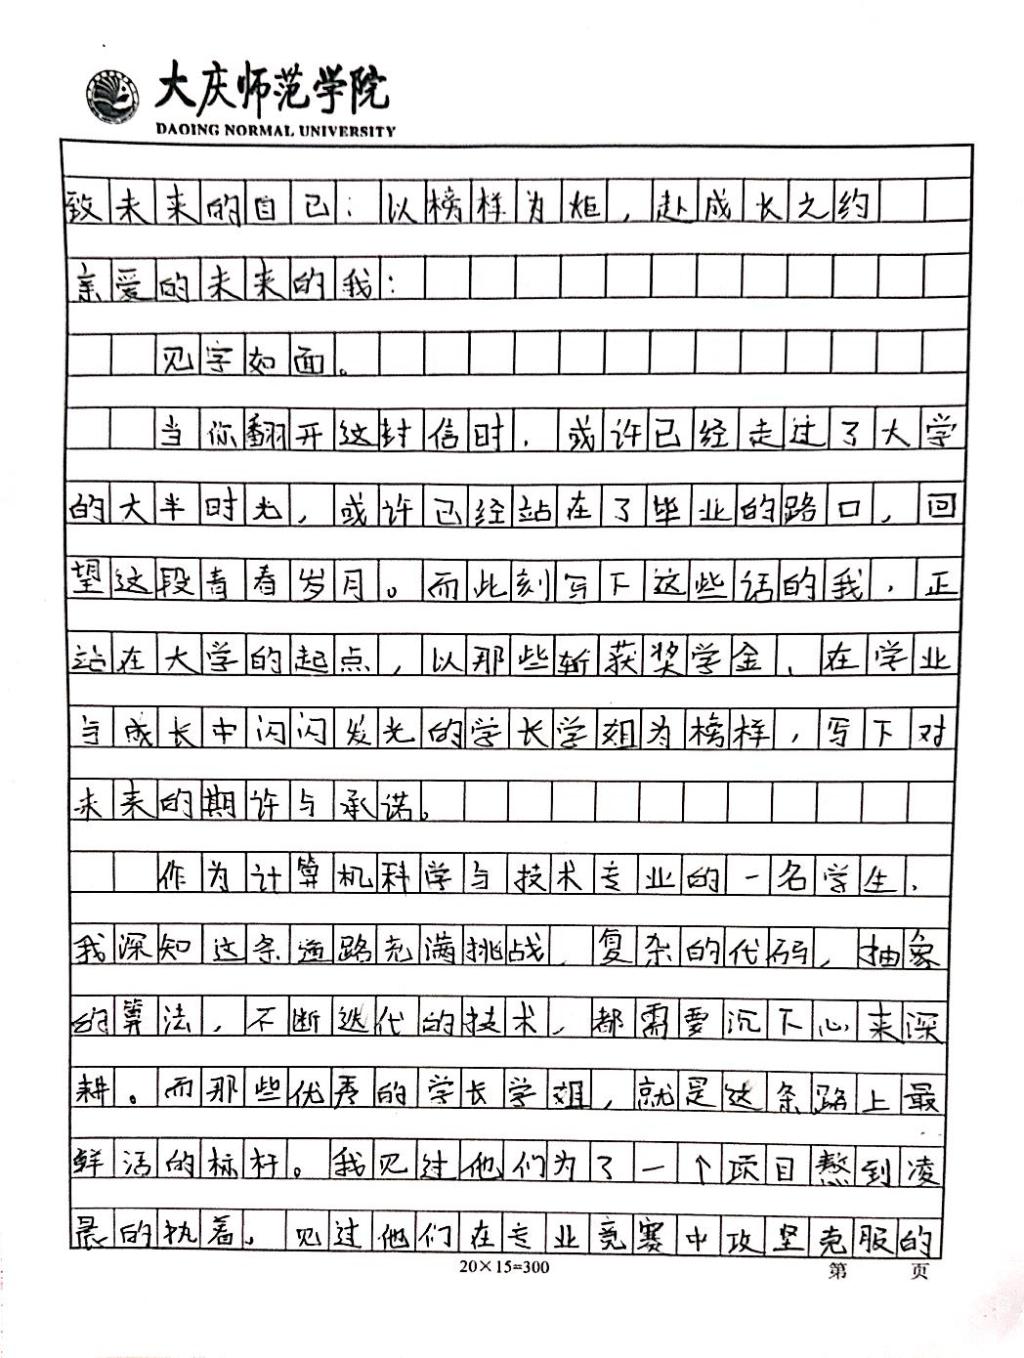 大庆师范学院
DAQING NORMAL UNIVERSITY
致未来的自己：以榜样为炬，赴成长之约
亲爱的未来的我：
见字如面。
当你翻开这封信时，或许已经走过了大学
的大半时光，或许已经站在了毕业的路口，回
望这段青春岁月。而此刻写下这些话的我，正
站在大学的起点，以那些斩获奖学金、在学业
与成长中闪闪发光的学长学姐为榜样，写下对
未来的期许与承诺。
作为计算机科学与技术专业的一名学生，
我深知这条道路充满挑战，复杂的代码，抽象
的算法，不断迭代的技术，都需要沉下心来深
耕。而那些优秀的学长学姐，就是这条路上最
鲜活的标杆。我见过他们为了一个项目熬到凌
晨的执着，见过他们在专业竞赛中攻坚克服的
20×15=300
第 页